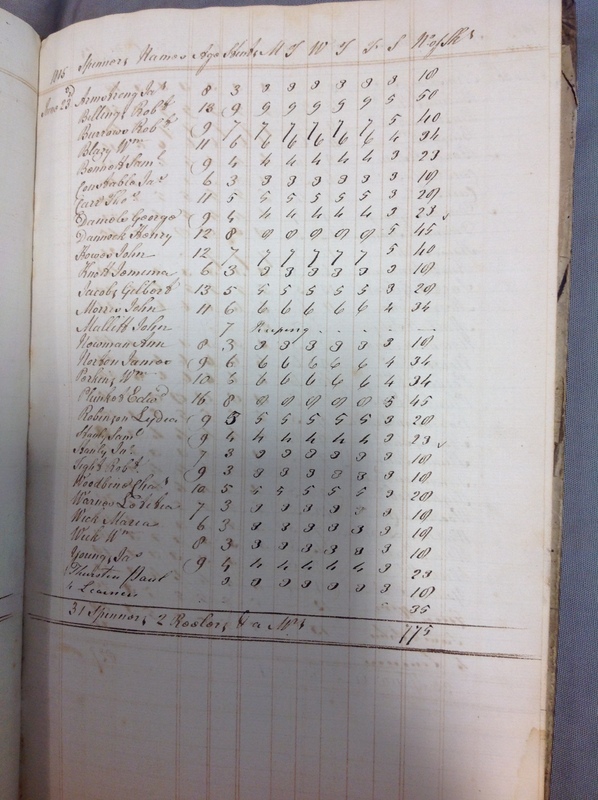 1815 Spinners Names Age Skeins M T W T F S No of Sks
June 23d Armstrong Jas 8 3 3 3 3 3 3 3 18
Billings Robt 13 9 9 9 9 9 9 5 50
Burrows Robt 9 7 7 7 7 7 7 5 40
Blazy Wm 11 6 6 6 6 6 6 4 34
Bennett Saml 9 4 4 4 4 4 4 3 23
Constable Jas 6 3 3 3 3 3 3 3 18
Carr Thos 11 5 5 5 5 5 5 3 28
George 9 4 4 4 4 4 4 3 23
Dannock Henry 12 8 8 8 8 8 8 5 45
Howes John 12 7 7 7 7 7 7 5 40
Knott Jemima 6 3 3 3 3 3 3 3 18
Jacobs Gelbert 13 5 5 5 5 5 5 3 28
Morris John 11 6 6 6 6 6 6 4 34
Mallett John 7
Newman Ann 8 3 3 3 3 3 3 3 18
Norton James 9 6 6 6 6 6 6 4 34
Perkins Wm 10 6 6 6 6 6 6 4 34
Plunket Edwd 16 8 8 8 8 8 8 5 45
Robinson Lydia 9 5 5 5 5 5 5 3 28
Stanly Saml 9 4 4 4 4 4 4 3 23
Stanly Jas 7 3 3 3 3 3 3 3 18
Robt 9 3 3 3 3 3 3 3 18
Chas 10 5 5 5 5 5 5 3 28
Warnes 7 3 3 3 3 3 3 3 18
Wick Maria 6 3 3 3 3 3 3 3 18
Wick Wm 8 3 3 3 3 3 3 3 18
Young Jas 9 4 4 4 4 4 4 3 23
Thurston Paul 3 3 3 3 3 3 3 18
4 Learners 35
31 Spinners 2 Reelers & a Mrs 775